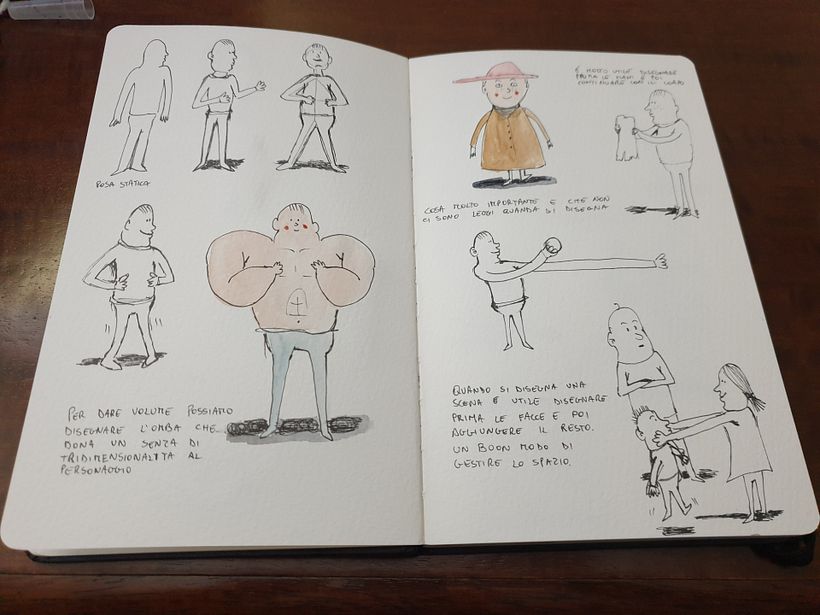 POSA STATICA
PER DARE VOLUME POSSIAMO
DISEGNARE L'OMBA CHE
DONA UN SENZA DI
TRIDIMENSIONALITA AL
PERSONAGGIO
È MOLTO UTILE DISEGNARE
PRIMA LE MANI E POI
CONTINUARE CON IL CORPO
COSA MOLTO IMPORTANTE E CHE NON
CI SONO LEGGI QUANDA SI DISEGNA
QUANDO SI DISEGNA UNA
SCENA È UTILE DISEGNARE
PRIMA LE FACCE E POI
AGGIUNGERE IL RESTO.
UN BUON MODO DI
GESTIRE LO SPAZIO.